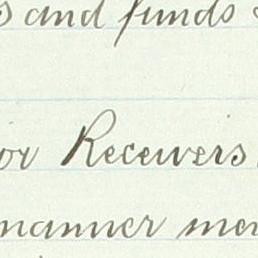 and funds
or Receivers
manner men